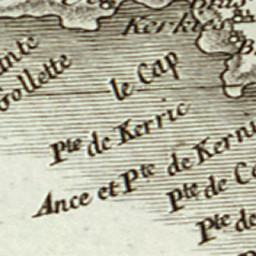 Kerk
ante
Gollette
le Cap
Pte de Kerric
Ance et Pte de Kerni
Pte de Co
Pte de